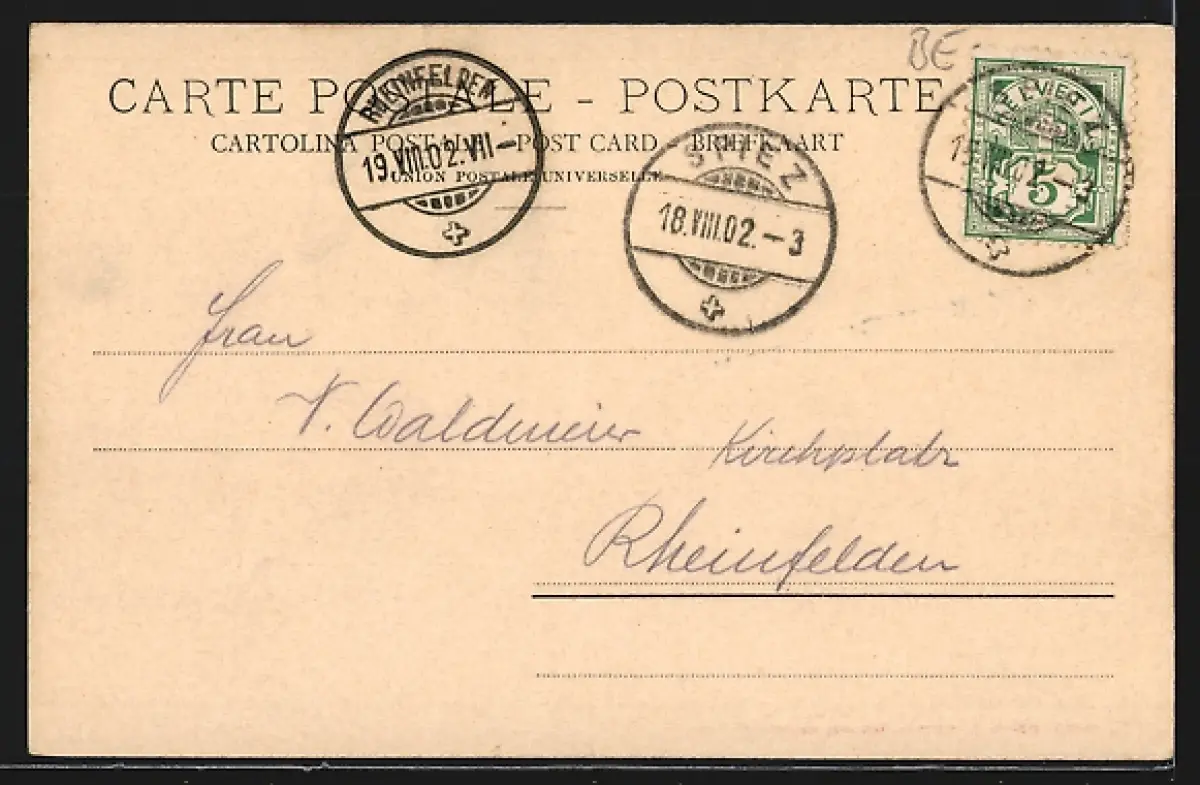 BE
CARTE POSTALE - POSTKARTE
CARTOLINA POSTALE - POST CARD - BRIEFKAART
UNION POSTALE UNIVERSELLE
RHEINFELDEN
19.VIII.02.VII-
SPIEZ
18.VIII.02.-3
HELVETIA
5
Frau
V. Waldmeier Kirchplatz
Rheinfelden